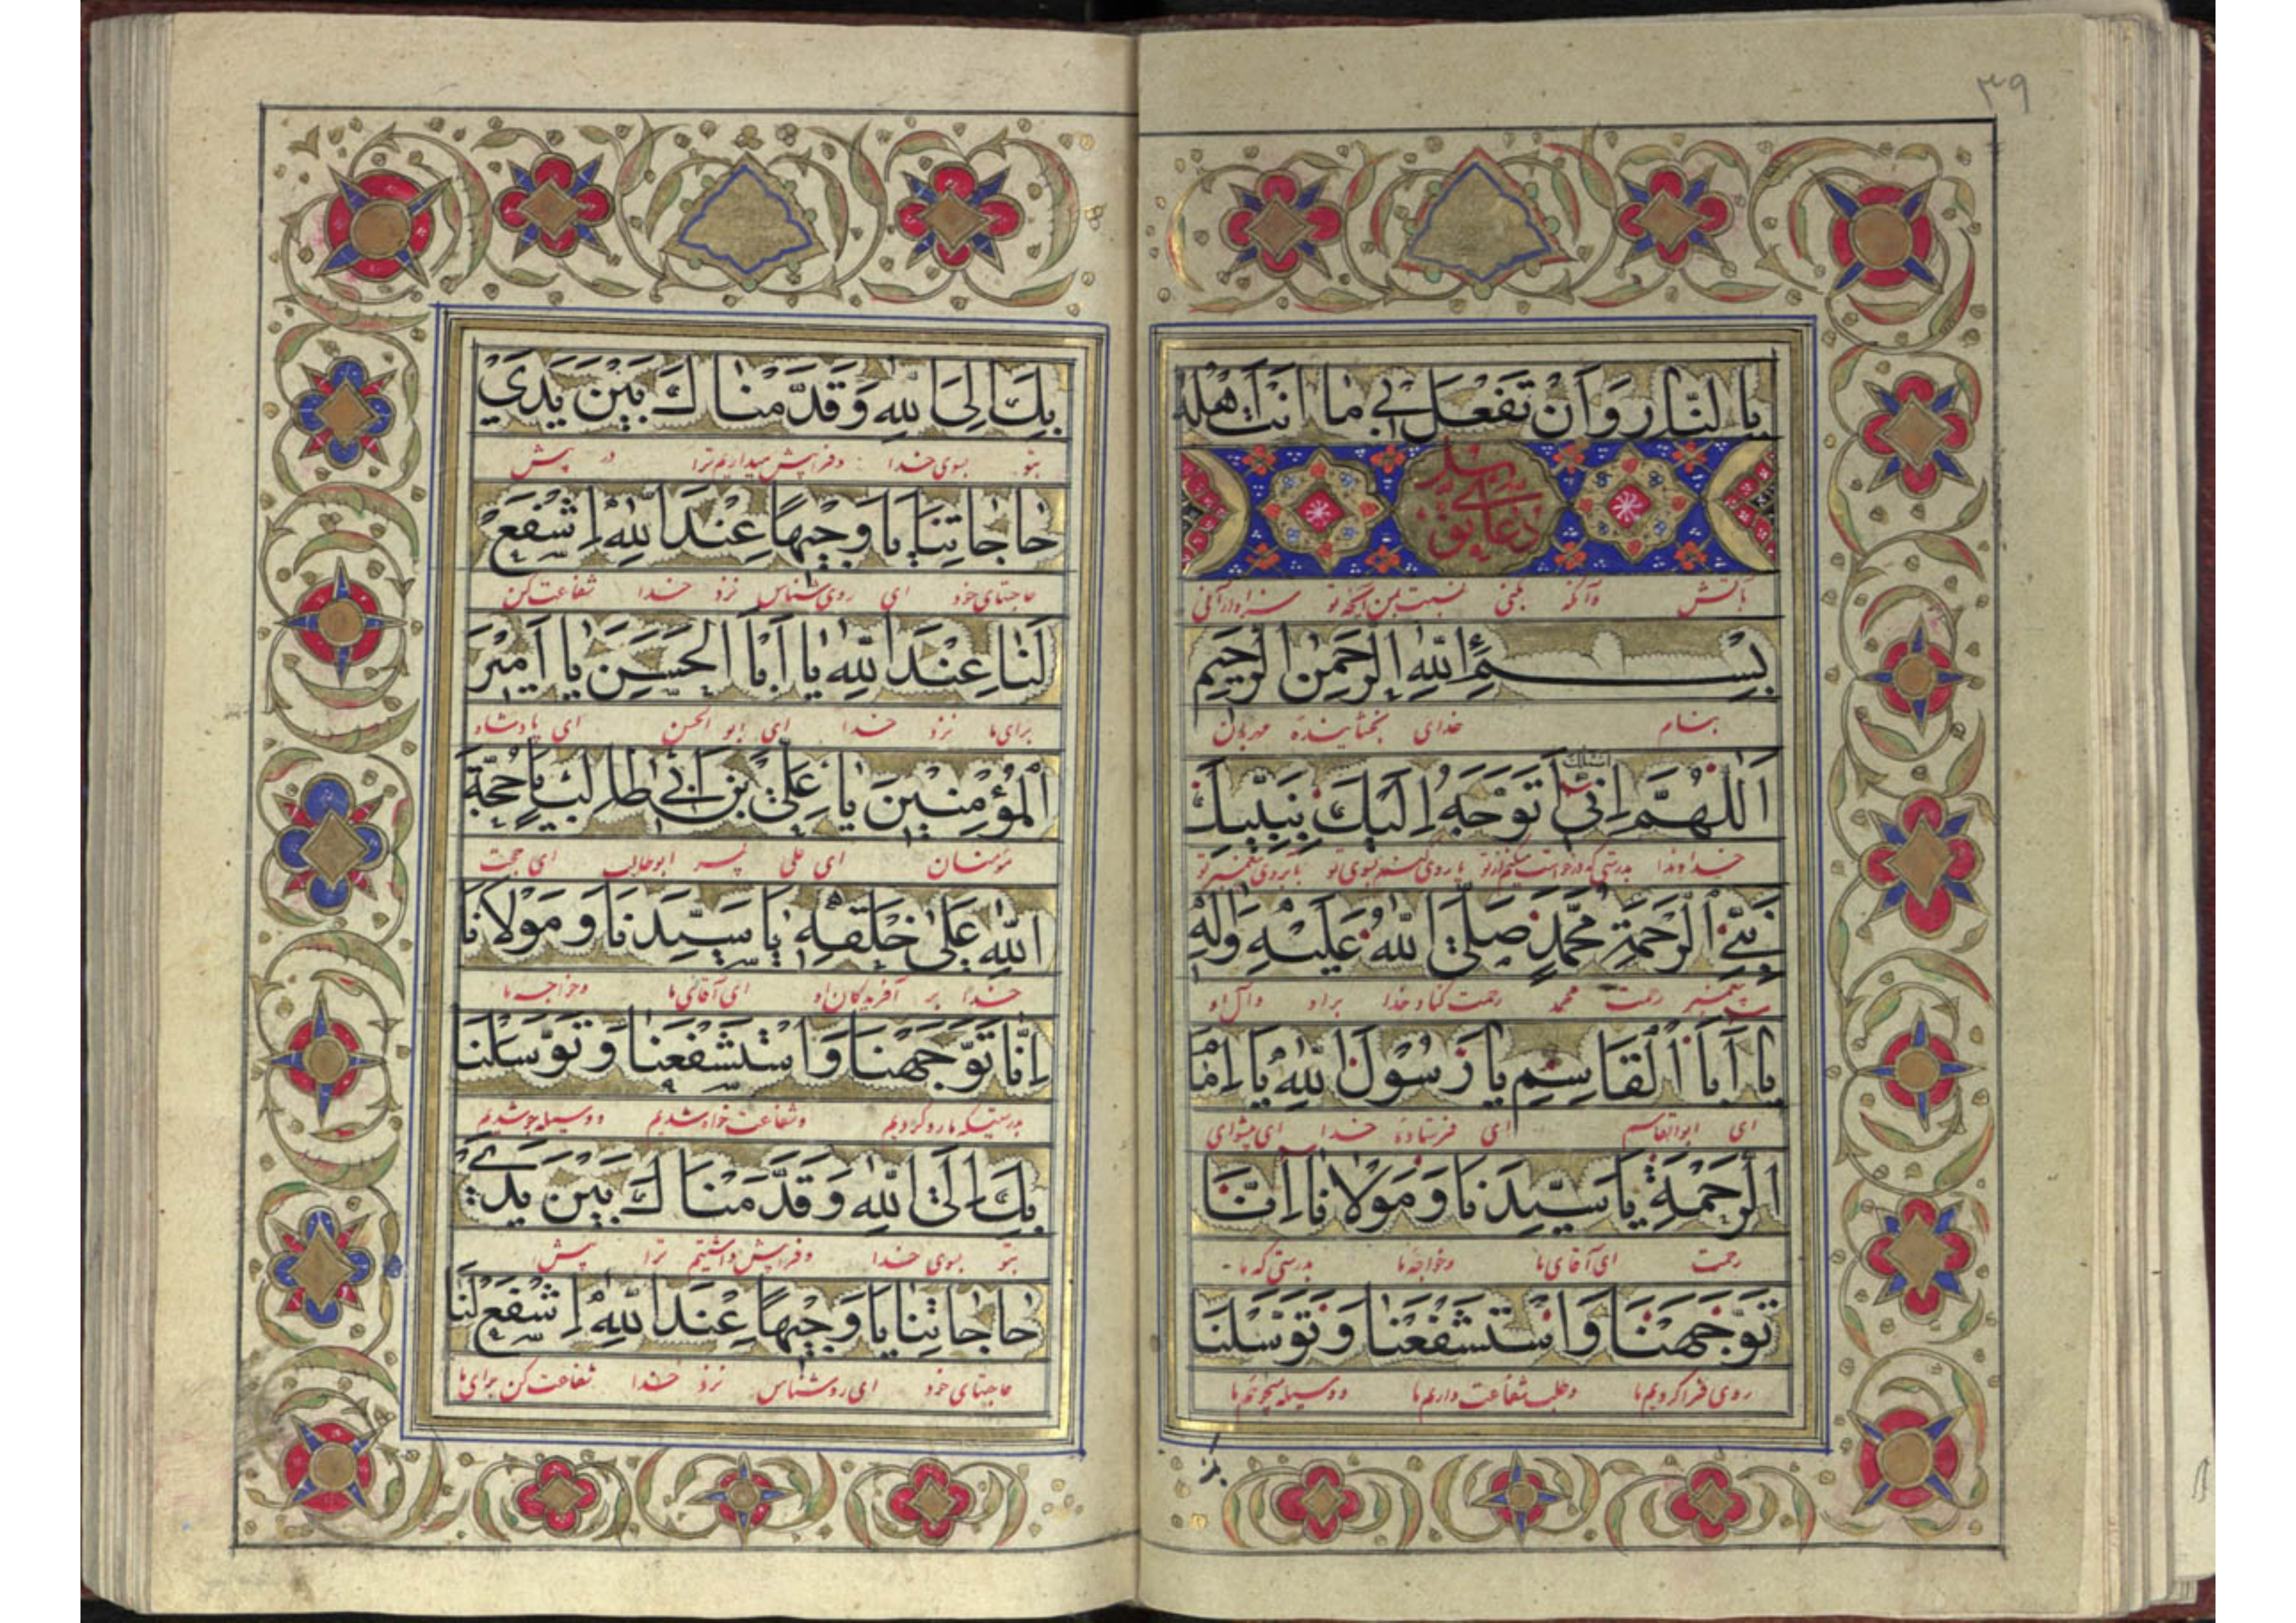 ۳۹
بِالنّارِ وَاَنْ تَفْعَلَ بی مٰا اَنْتَ اَهْلُهُ
دعای توسل
باتش وآنکه بکنی نسبت بمن آنچه تو سزاوار آنی
بِسْمِ اللّٰهِ الرَّحْمٰنِ الرَّحیمِ
بنام خدای بخشاینده مهربان
اَللّٰهُمَّ اِنّی اَسْئَلُكَ وَ اَتَوَجَّهُ اِلَیْكَ بِنَبِیِّكَ
خداوندا بدرستی که درخواست میکنم از تو بسوی تو پیغمبر تو
نَبِیِّ الرَّحْمَةِ مُحَمَّدٍ صَلَّی اللّٰهُ عَلَیْهِ وَاٰلِهِ
پیغمبر رحمت محمد رحمت کناد خدا براو وآل او
یٰا اَبَا الْقٰاسِمِ یٰا رَسُولَ اللّٰهِ یٰا اِمٰامَ
ای ابوالقاسم ای فرستادهٔ خدا ای پیشوای
الرَّحْمَةِ یٰا سَیِّدَنٰا وَ مَوْلانٰا اِنّٰا
رحمت ای آقای ما وخواجهٔ ما بدرستی که ما
تَوَجَّهْنٰا وَاسْتَشْفَعْنٰا وَ تَوَسَّلْنٰا
روی فرا کردیم ما وطلب شفاعت داریم ما ووسیله میجوئیم ما
بِكَ اِلَی اللّٰهِ وَ قَدَّمْنٰاكَ بَیْنَ یَدَیْ
بتو بسوی خدا وفرا پیش میداریم ترا در پیش
حٰاجٰاتِنٰا یٰا وَجیهًا عِنْدَ اللّٰهِ اِشْفَعْ
حاجتهای خود ای روی شناس نزد خدا شفاعت کن
لَنٰا عِنْدَ اللّٰهِ یٰا اَبَا الْحَسَنِ یٰا اَمیرَ
برای ما نزد خدا ای ابو الحسن ای پادشاه
الْمُؤْمِنینَ یٰا عَلِیَّ بْنَ اَبی طٰالِبٍ یٰا حُجَّةَ
مؤمنان ای علی پسر ابوطالب ای حجت
اللّٰهِ عَلیٰ خَلْقِهِ یٰا سَیِّدَنٰا وَ مَوْلانٰا
خدا بر آفریدگان او ای آقای ما وخواجه ما
اِنّٰا تَوَجَّهْنٰا وَاسْتَشْفَعْنٰا وَ تَوَسَّلْنٰا
بدرستیکه ما رو کردیم وشفاعت خواه شدیم ووسیله جو شدیم
بِكَ اِلَی اللّٰهِ وَ قَدَّمْنٰاكَ بَیْنَ یَدَیْ
بتو بسوی خدا وفرا پیش داشتیم ترا پیش
حٰاجٰاتِنٰا یٰا وَجیهًا عِنْدَ اللّٰهِ اِشْفَعْ لَنٰا
حاجتهای خود ای روشناس نزد خدا شفاعت کن برای ما